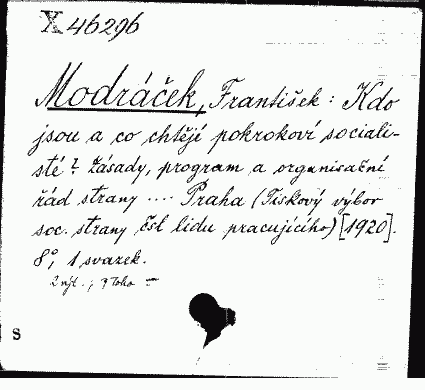 X 46296
Modráček, František: Kdo
jsou a co chtějí pokrokoví sociali-
sté? Zásady, program a organisační
řád strany .... Praha (Tiskový výbor
soc. strany čsl. lidu pracujícího) [1920].
8°, 1 svazek.
S